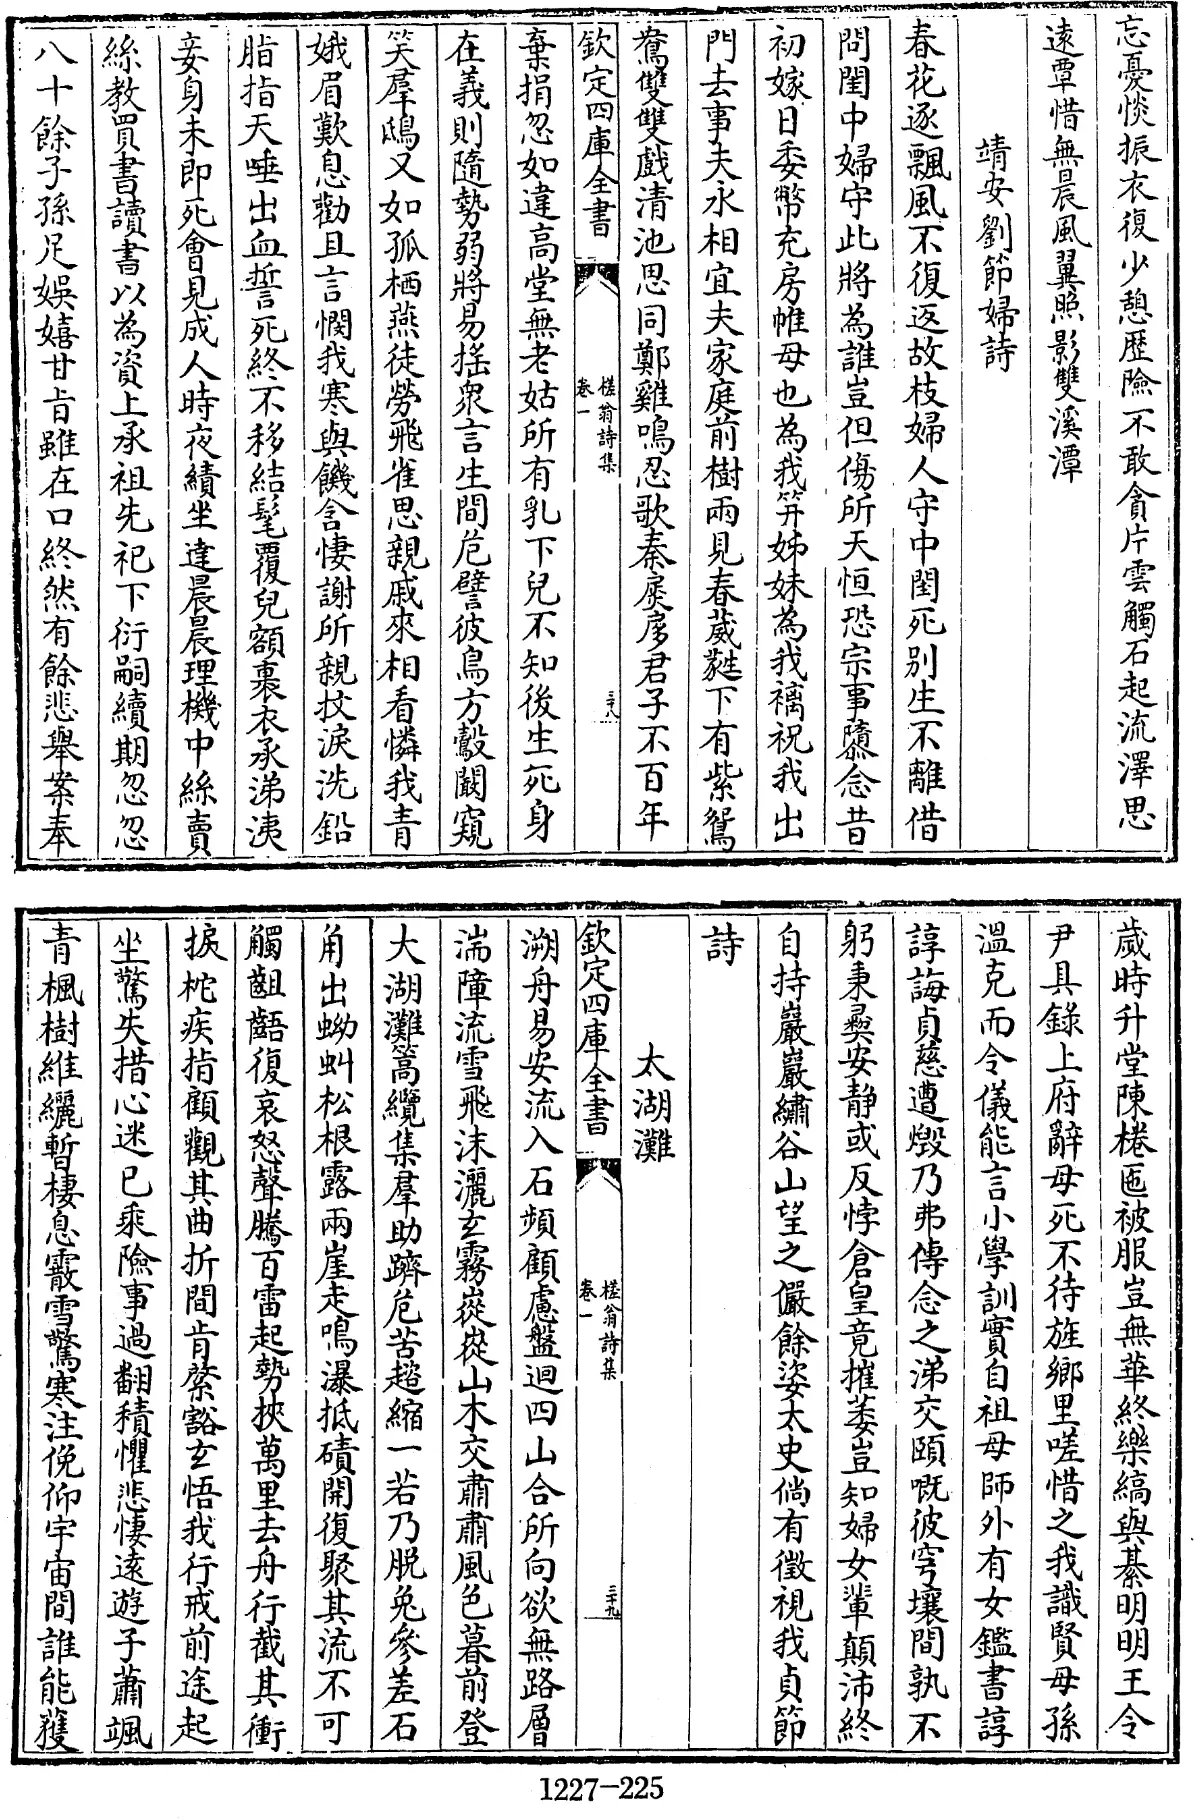 忘憂惔振衣復少憩歷險不敢貪片雲觸石起流澤思
遠覃惜無晨風翼照影雙溪潭
靖安劉節婦詩
春花逐飄風不復返故枝婦人守中閨死別生不離借
問閨中婦守此將為誰豈但傷所天恒恐宗事隳念昔
初嫁日委幣充房帷母也為我笄姊妹為我褵祝我出
門去事夫永相宜夫家庭前樹兩見春葳蕤下有紫鴛
鴦雙雙戲清池思同鄭雞鳴忍歌秦扊扅君子不百年
欽定四庫全書
槎翁詩集
卷一
三十八
棄捐忽如遺高堂無老姑所有乳下兒不知後生死身
在義則隨勢弱將易搖衆言生間危譬彼鳥方鷇闞窺
笑羣鴟又如孤栖燕徒勞飛雀思親戚來相看憐我青
娥眉歎息勸且言憫我寒與饑含悽謝所親抆淚洗鉛
脂指天唾出血誓死終不移結髦覆兒額裹衣承涕洟
妾身未即死會見成人時夜績坐達晨晨理機中絲賣
絲教買書讀書以為資上承祖先祀下衍嗣續期忽忽
八十餘子孫足娛嬉甘旨雖在口終然有餘悲舉案奉
歲時升堂陳棬匜被服豈無華終樂縞與綦明明王令
尹具錄上府辭母死不待旌鄉里嗟惜之我識賢母孫
溫克而令儀能言小學訓實自祖母師外有女鑑書諄
諄誨貞慈遭燬乃弗傳念之涕交頤嘅彼穹壤間孰不
躬秉彞安靜或反悖倉皇竟摧萎豈知婦女輩顛沛終
自持巖巖繡谷山望之儼餘姿太史倘有徵視我貞節
詩
太湖灘
欽定四庫全書
槎翁詩集
卷一
三十九
溯舟易安流入石頻顧慮盤迴四山合所向欲無路層
湍障流雪飛沫灑玄霧嵷嵷山木交肅肅風色暮前登
大湖灘篙纜集羣助躋危苦趦縮一若乃脱兔參差石
角出蚴虯松根露兩崖走鳴瀑抵磧開復聚其流不可
觸齟齬復哀怒聲騰百雷起勢挾萬里去舟行截其衝
捩柁疾指顧觀其曲折間肯綮豁玄悟我行戒前途起
坐驚失措心迷已乘險事過翻積懼悲悽遠遊子蕭颯
青楓樹維纚暫棲息霰雪驚寒注俛仰宇宙間誰能獲
1227-225